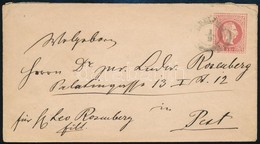 Wolgeboren
Herrn Dr jur. Ludw. Rosenberg
Palatingasse 13 X 12
für H Leo Rosenberg in Pest